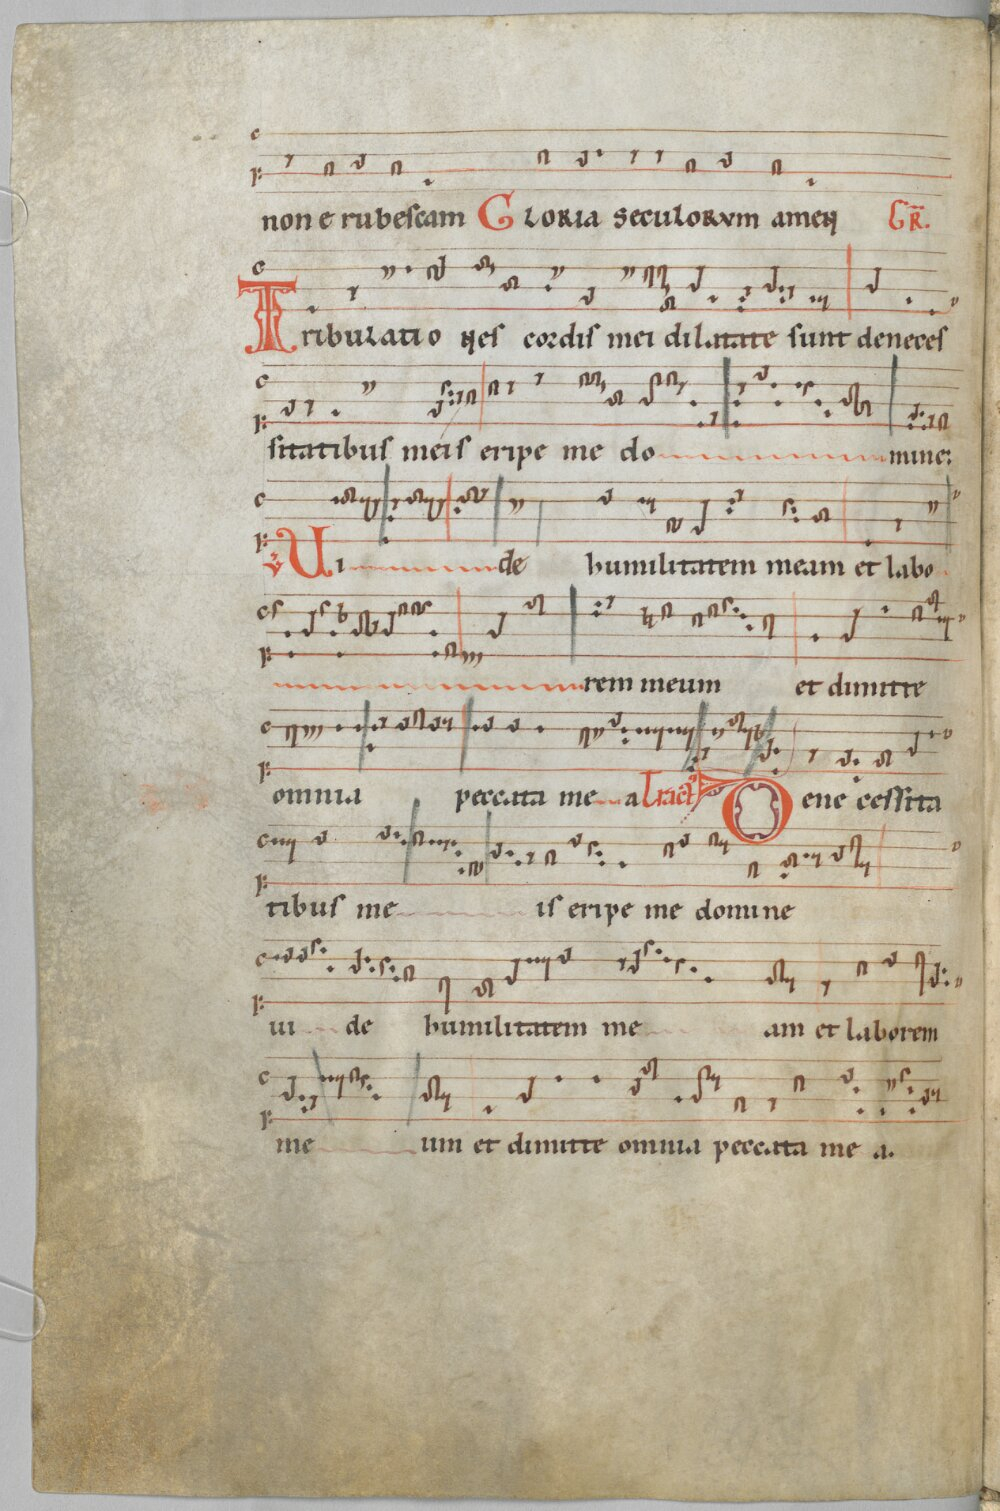 non e rubescam Gloria seculorum amen GR.
Tribulatio nes cordis mei dilatate sunt deneces
sitatibus meis eripe me do mine:
V Ui de humilitatem meam et labo
rem meum et dimitte
omnia peccata me a Tract De ne cessita
tibus me is eripe me domine
ui de humilitatem me am et laborem
me um et dimitte omnia peccata me a.